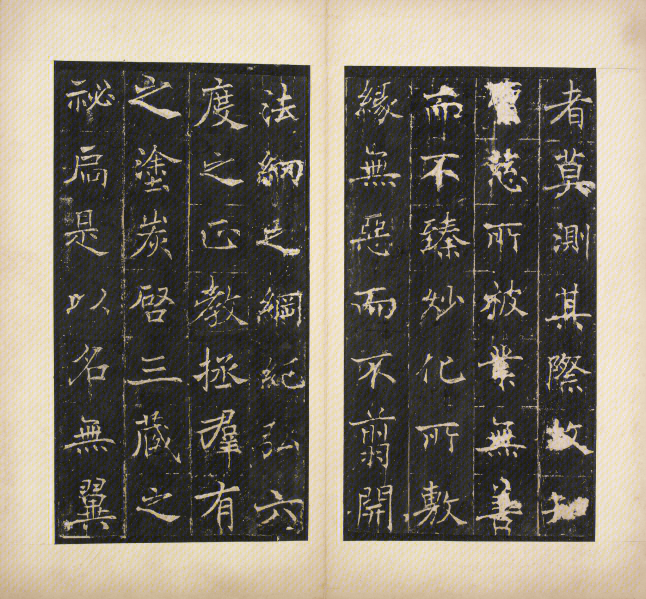 者莫測其際故知
聖慈所被業無善
而不臻妙化所敷
緣無惡而不翦開
法網之綱紀弘六
度之正教拯羣有
之塗炭啓三藏之
祕扃是以名無翼